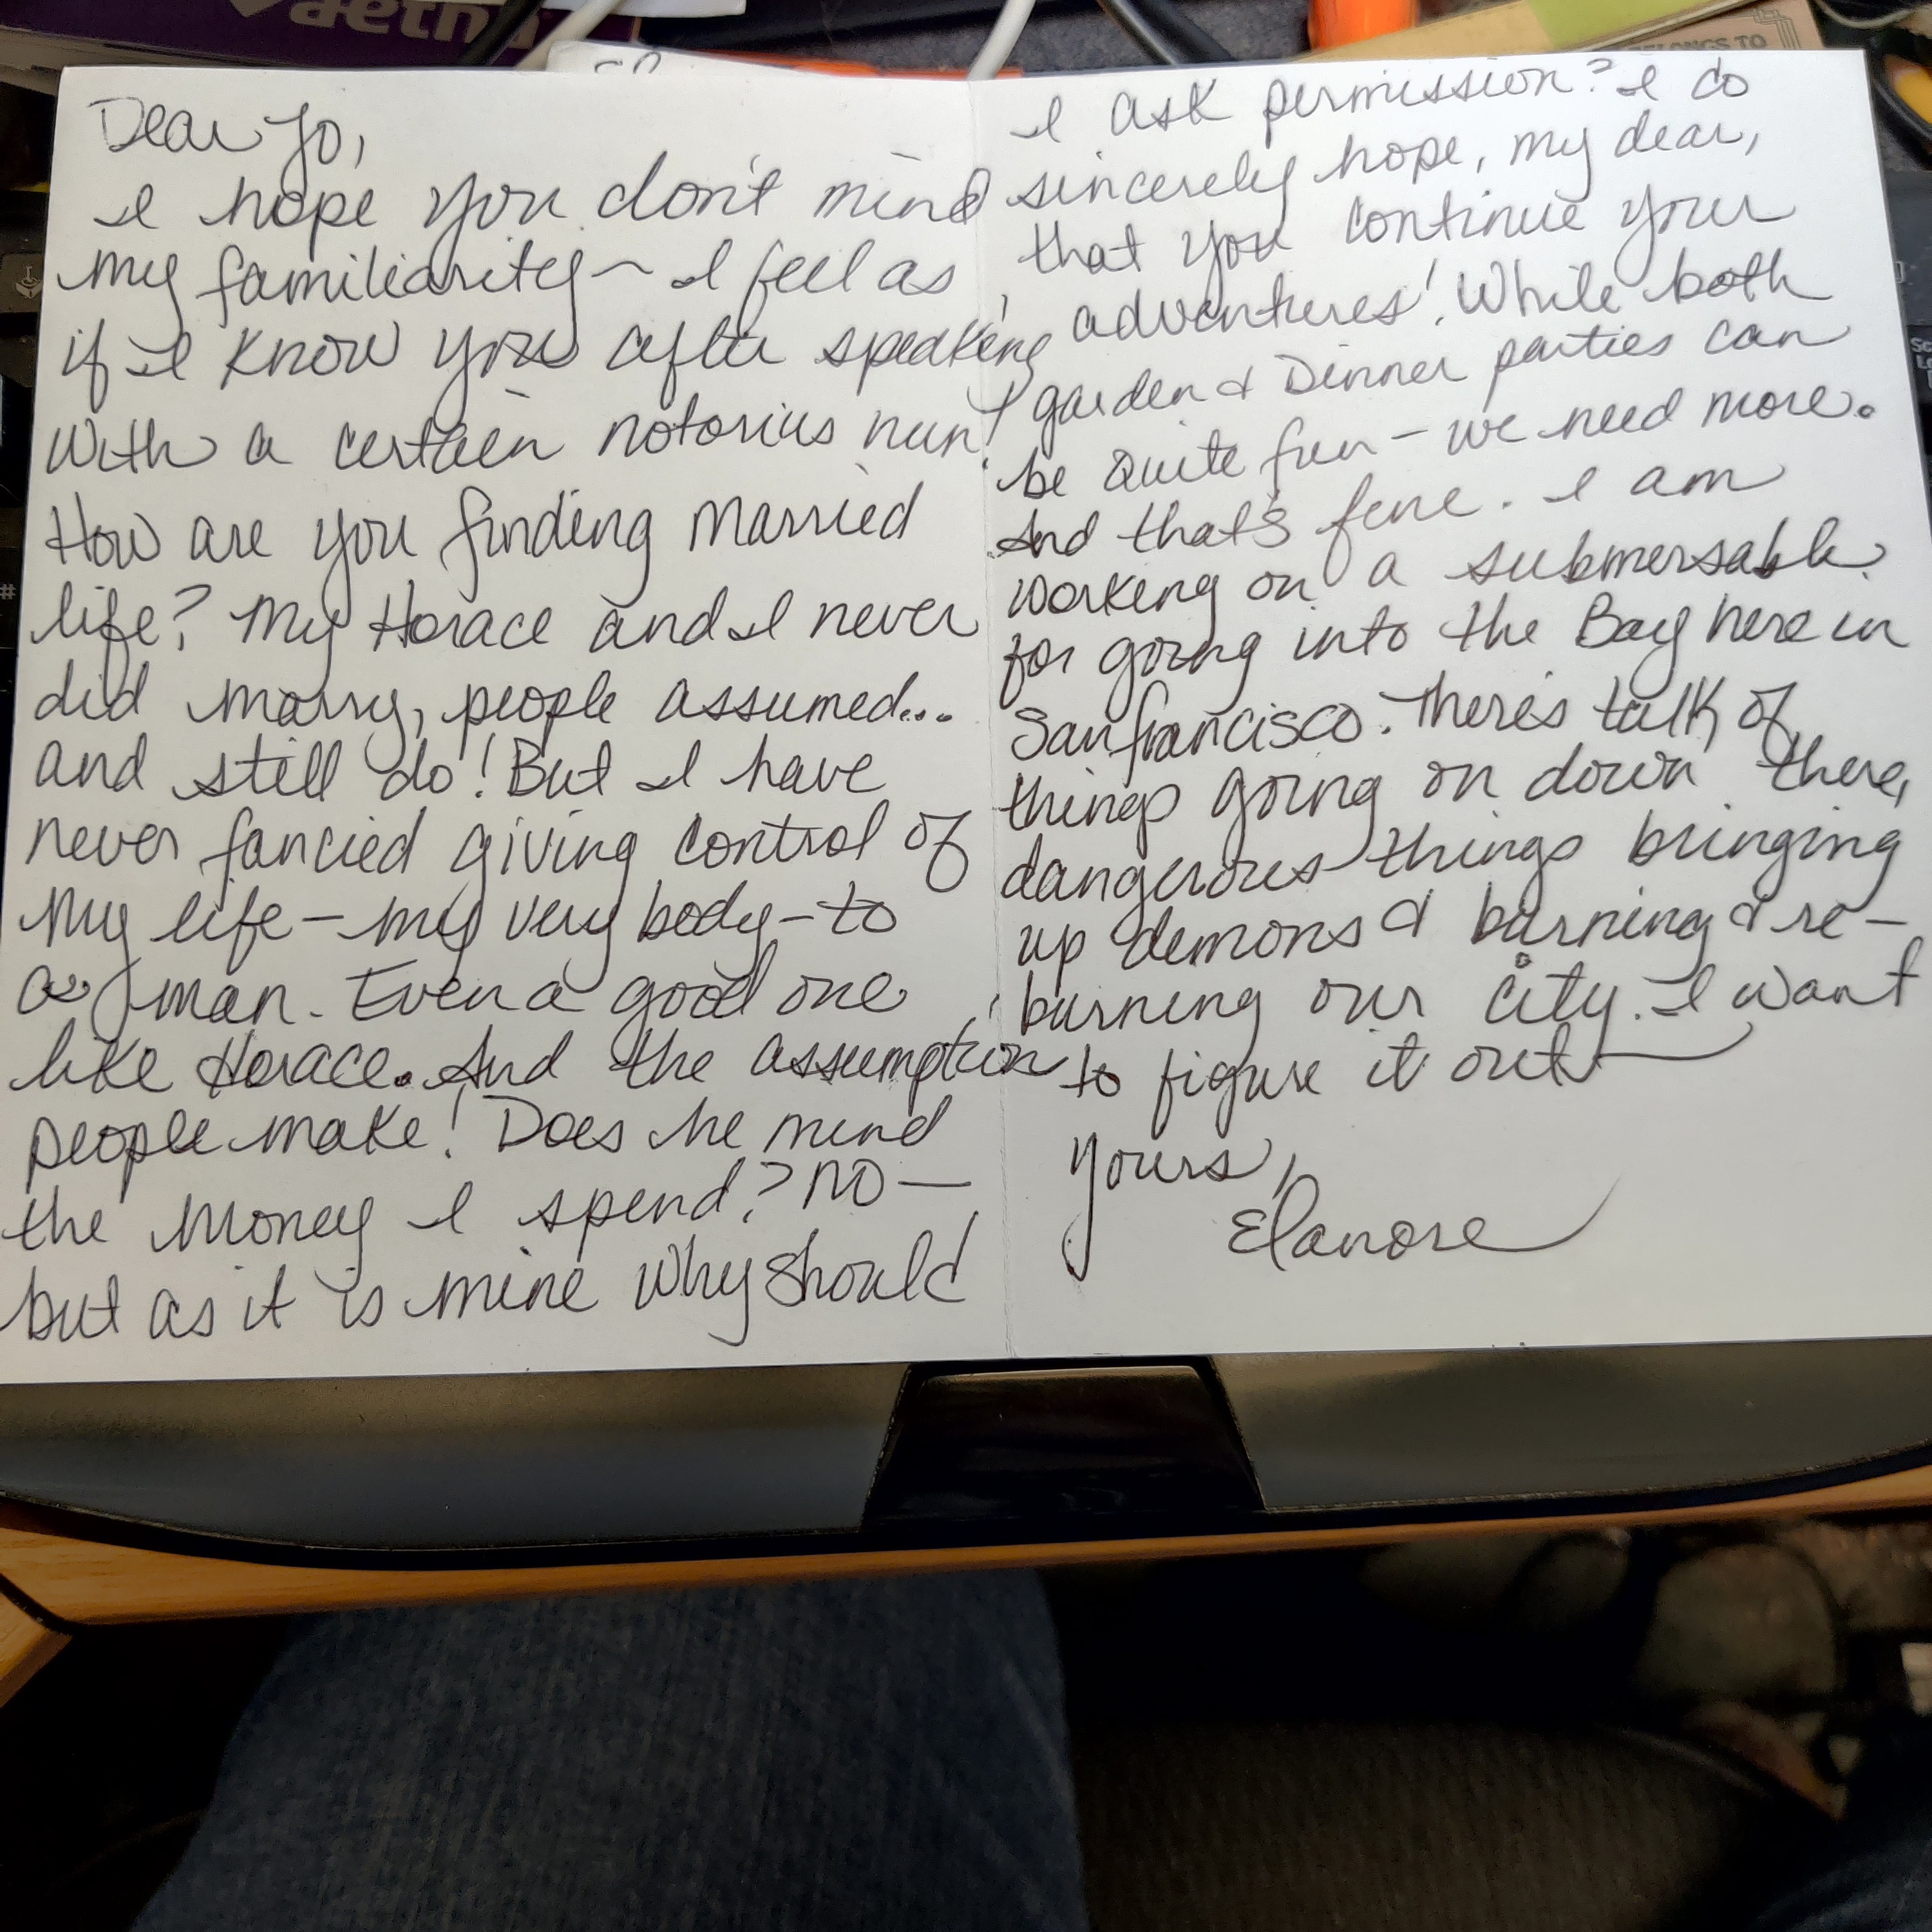 aetna
BELONGS TO
Dear Jo,
I hope you don't mind
my familiarity ~ I feel as
if I know you after speaking
with a certain notorius nun!
How are you finding married
life? My Horace and I never
did marry, people assumed...
and still do! But I have
never fancied giving control of
my life - my very body - to
a man. Even a good one
like Horace. And the assumption
people make! Does he mind
the money I spend? NO —
but as it is mine why should
I ask permission? I do
sincerely hope, my dear,
that you continue your
adventures! While both
garden & Dinner parties can
be quite fun - we need more.
And that's fine. I am
working on a submersable
for going into the Bay here in
San francisco. There's talk of
things going on down there,
dangerous things bringing
up demons & burning & re-
burning our city. I want
to figure it out
Yours,
Elanore